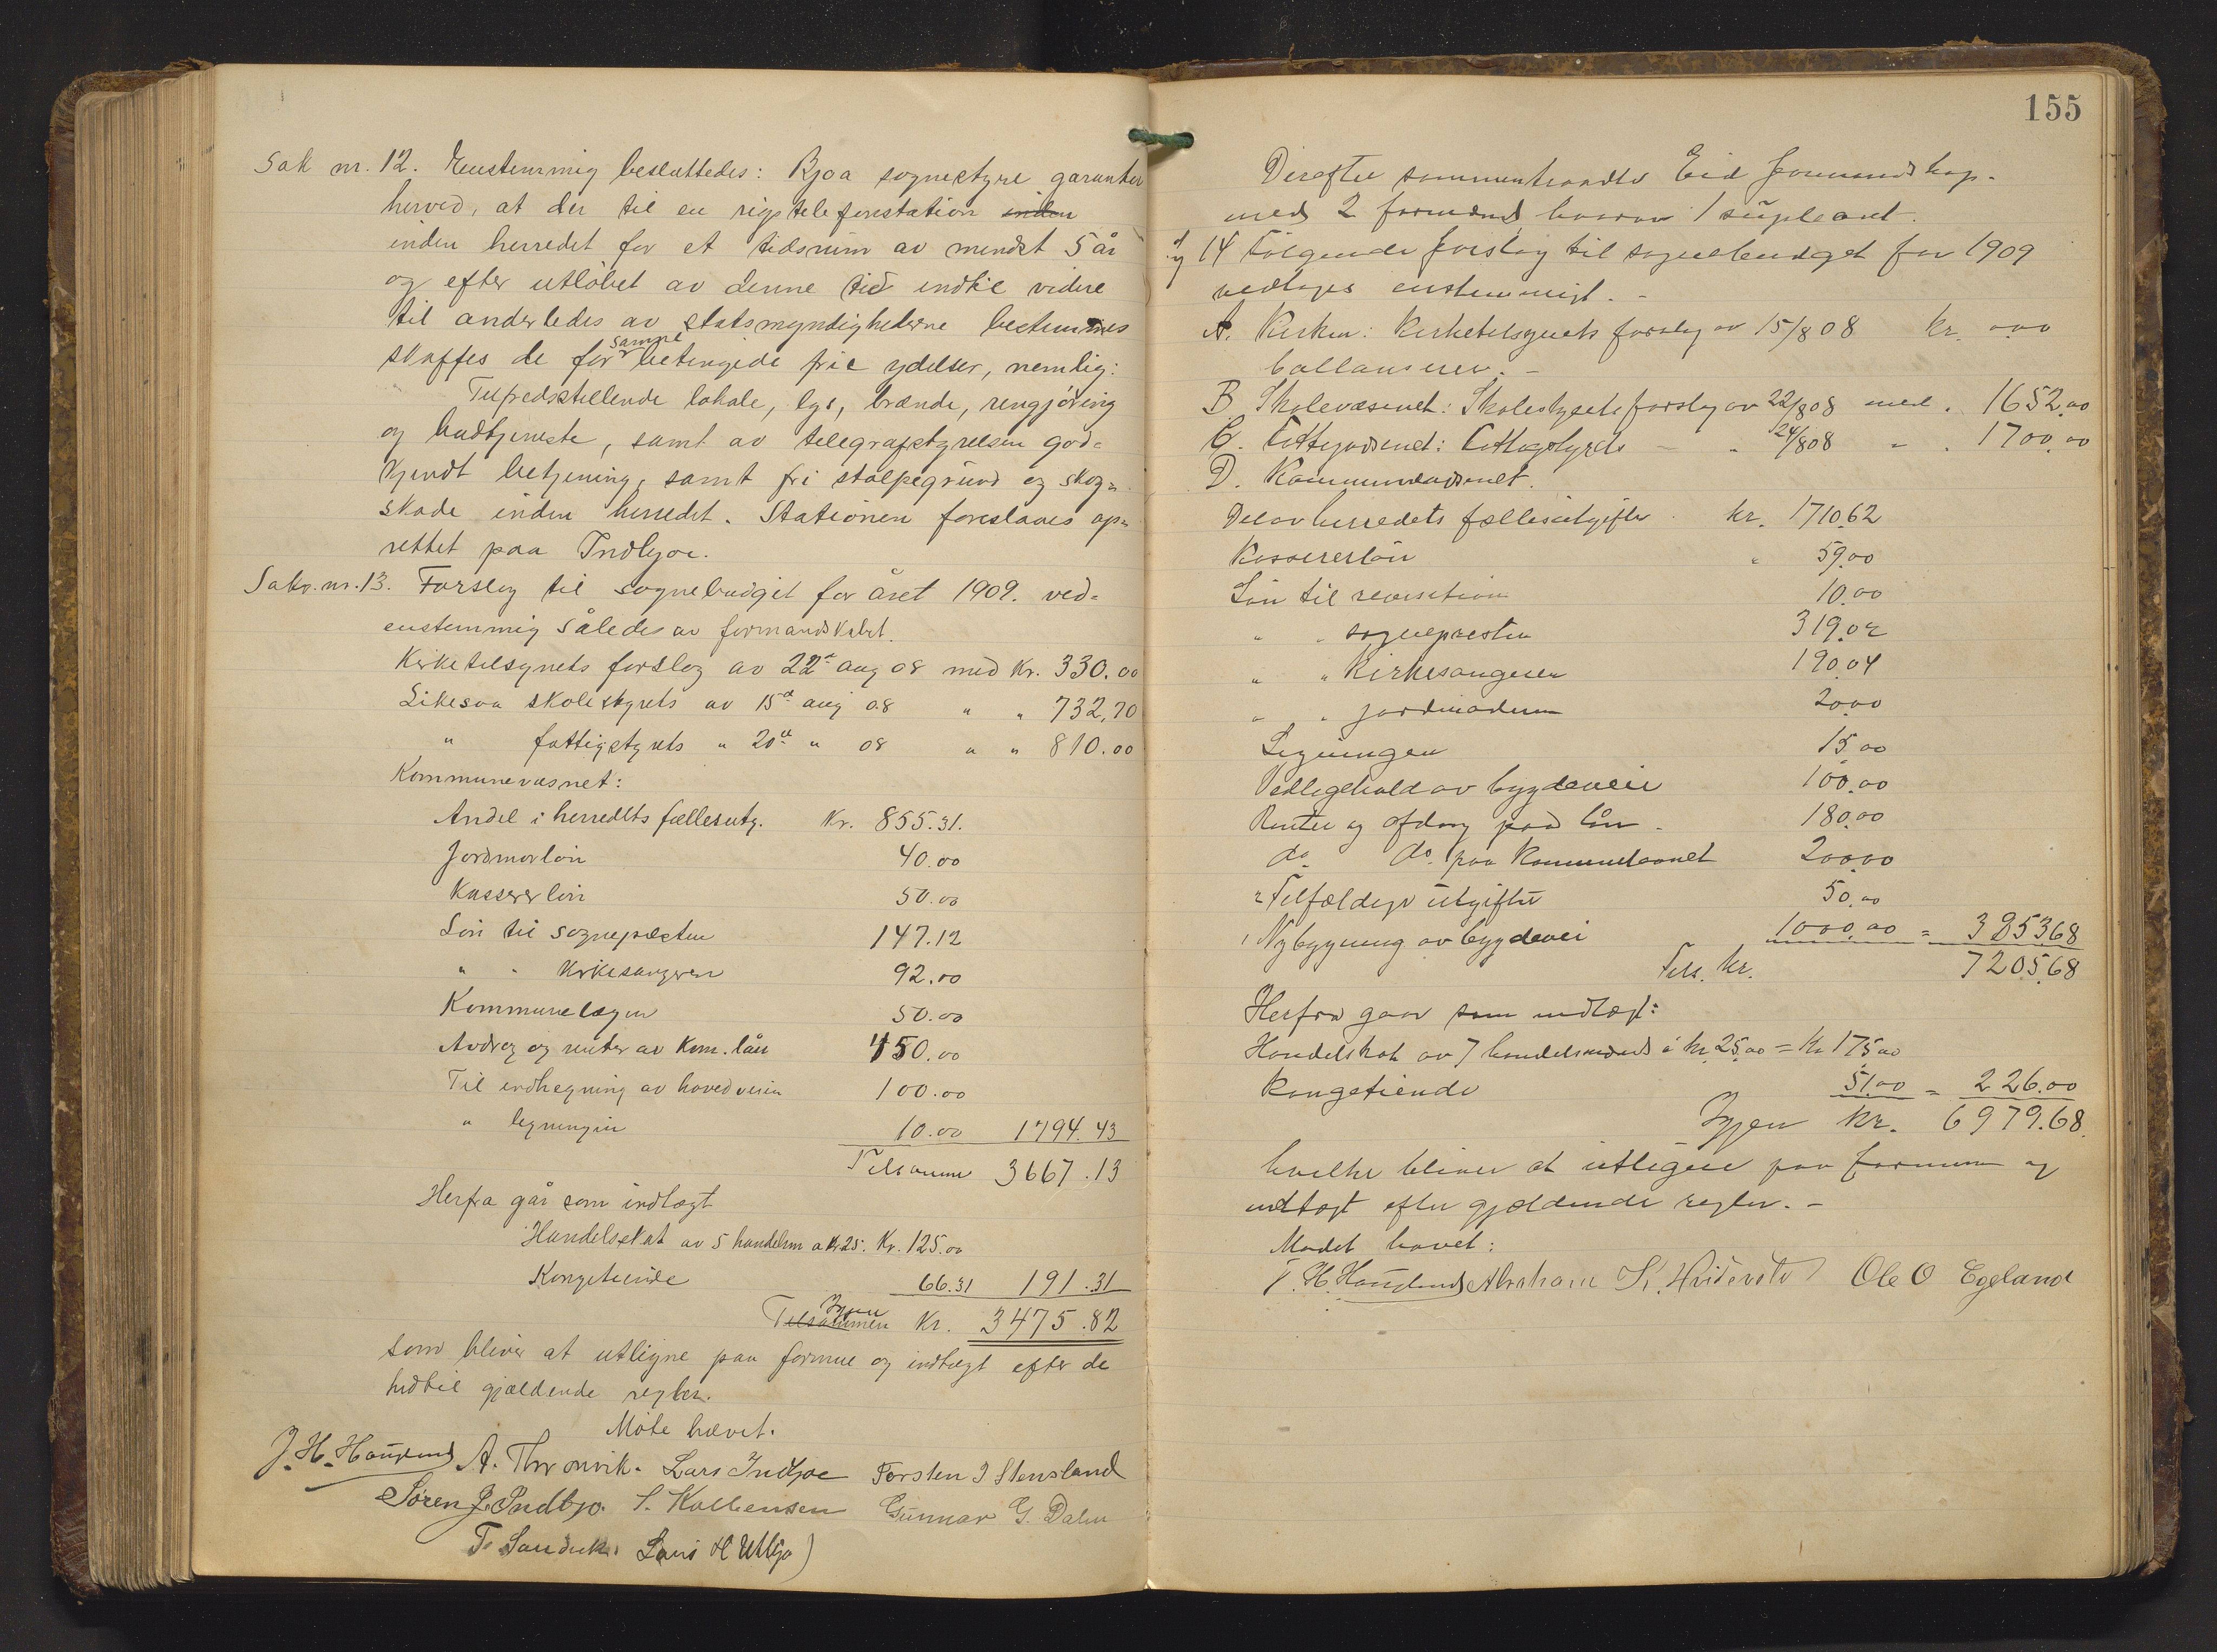 Sak nr. 12. Enstemmig besluttedes: Bjoa sognestyre garanter
herved, at der til en rigstelefonstation inden
inden herredet for et tidsrum av mindst 5 år
og efter utløbet av denne tid indtil videre
til anderledes av statsmyndighederne bestemmes
samme
skaffes de for betingede frie ydelser, nemlig:
Tilfredsstillende lokale, lys, brænde, rengjøring
og budtjeneste, samt av telegrafstyrelsen god-
kjendt betjening, samt fri stolpegrund og skog-
skade inden herredet. Stationen foreslaaes op-
rettet paa Indbjoe.
Saks. nr. 13. Forslag til sognebudget for året 1909. ved-
enstemmig således av formandskabet.
Kirketilsynets forslag av 22de aug 08 med Kr. 330.00
Likesaa skolestyrets av 15de aug 08 " " 732,70
" fattigstyrets " 20de " 08 " " 810.00
Kommunevæsnet:
Andel i herredets fællesutg. Kr. 855.31.
Jordmorløn 40.00
Kassererløn 50.00
Løn til sognepresten 147.12
" " Kirkesangeren 92.00
Kommunelægen 50.00
Avdrag og renter av Kom. lån 450.00
Til indhegning av hovedveien 100.00
" ligningen 10.00 1794.43
Tilsammen 3667.13
Herfra går som indtægt
Handelsskat av 5 handelsm a Kr 25. Kr. 125.00
Kongetiende 66.31 191.31
Igjen
Tilsammen Kr. 3475.82
som bliver at utligne paa formue og indtægt efter de
hidtil gjældende regler.
Møte hævet.
J. H. Haugland A. Thronvik. Lars Indbjoe Torsten J Stensland
Søren J. Indbjo. S. Kolbensen Gunnar G. Dalen
T. Sandvik. Lars H Utbjo)
155
Derefter sammentraadte Eid formandskap.
med 2 formænd, hvorav 1 supleant.
14 Følgende forslag til sognebudget for 1909
vedtages enstemmigt. -
A. Kirken: Kirketilsynets forslag av 15/8 08 kr. 000
ballanserer. -
B Skolevæsenet: Skolestyrets forslag av 22/8 08 med . 1652.00
C. Fattigvæsenet: Fattigstyrets — " 24/8 08 - . 1700.00
D. Kommunevæsenet.
Del av herredets fællesutgifter kr. 1710.62
Kassererløn " 59.00
Løn til revisition 10.00
" " sognepresten 319.02
" " Kirkesangeren 190.04
" " jordmoderen 20.00
Ligningen 15.00
Vedligehold av bygdeveie 100.00
Renter og afdrag paa lån - 180.00
do. do. paa Kommunelaanet 200.00
" Tilfældige utgifter 50.00
" Nybygning av bygdevei 1000.00 = 3853.68
Tils. kr. 7205.68
Herfra gaar som indtægt:
Handelskat av 7 handelsmænd à kr 25.00 = Kr 175.00
Kongetiende 51.00 = 226.00
Igjen kr. 6979.68.
hvilke bliver at utligne paa formue og
indtægt efter gjældende regler. -
Mødet hævet:
J. H. Haugland Abraham K. Hvidevold Ole O Egeland